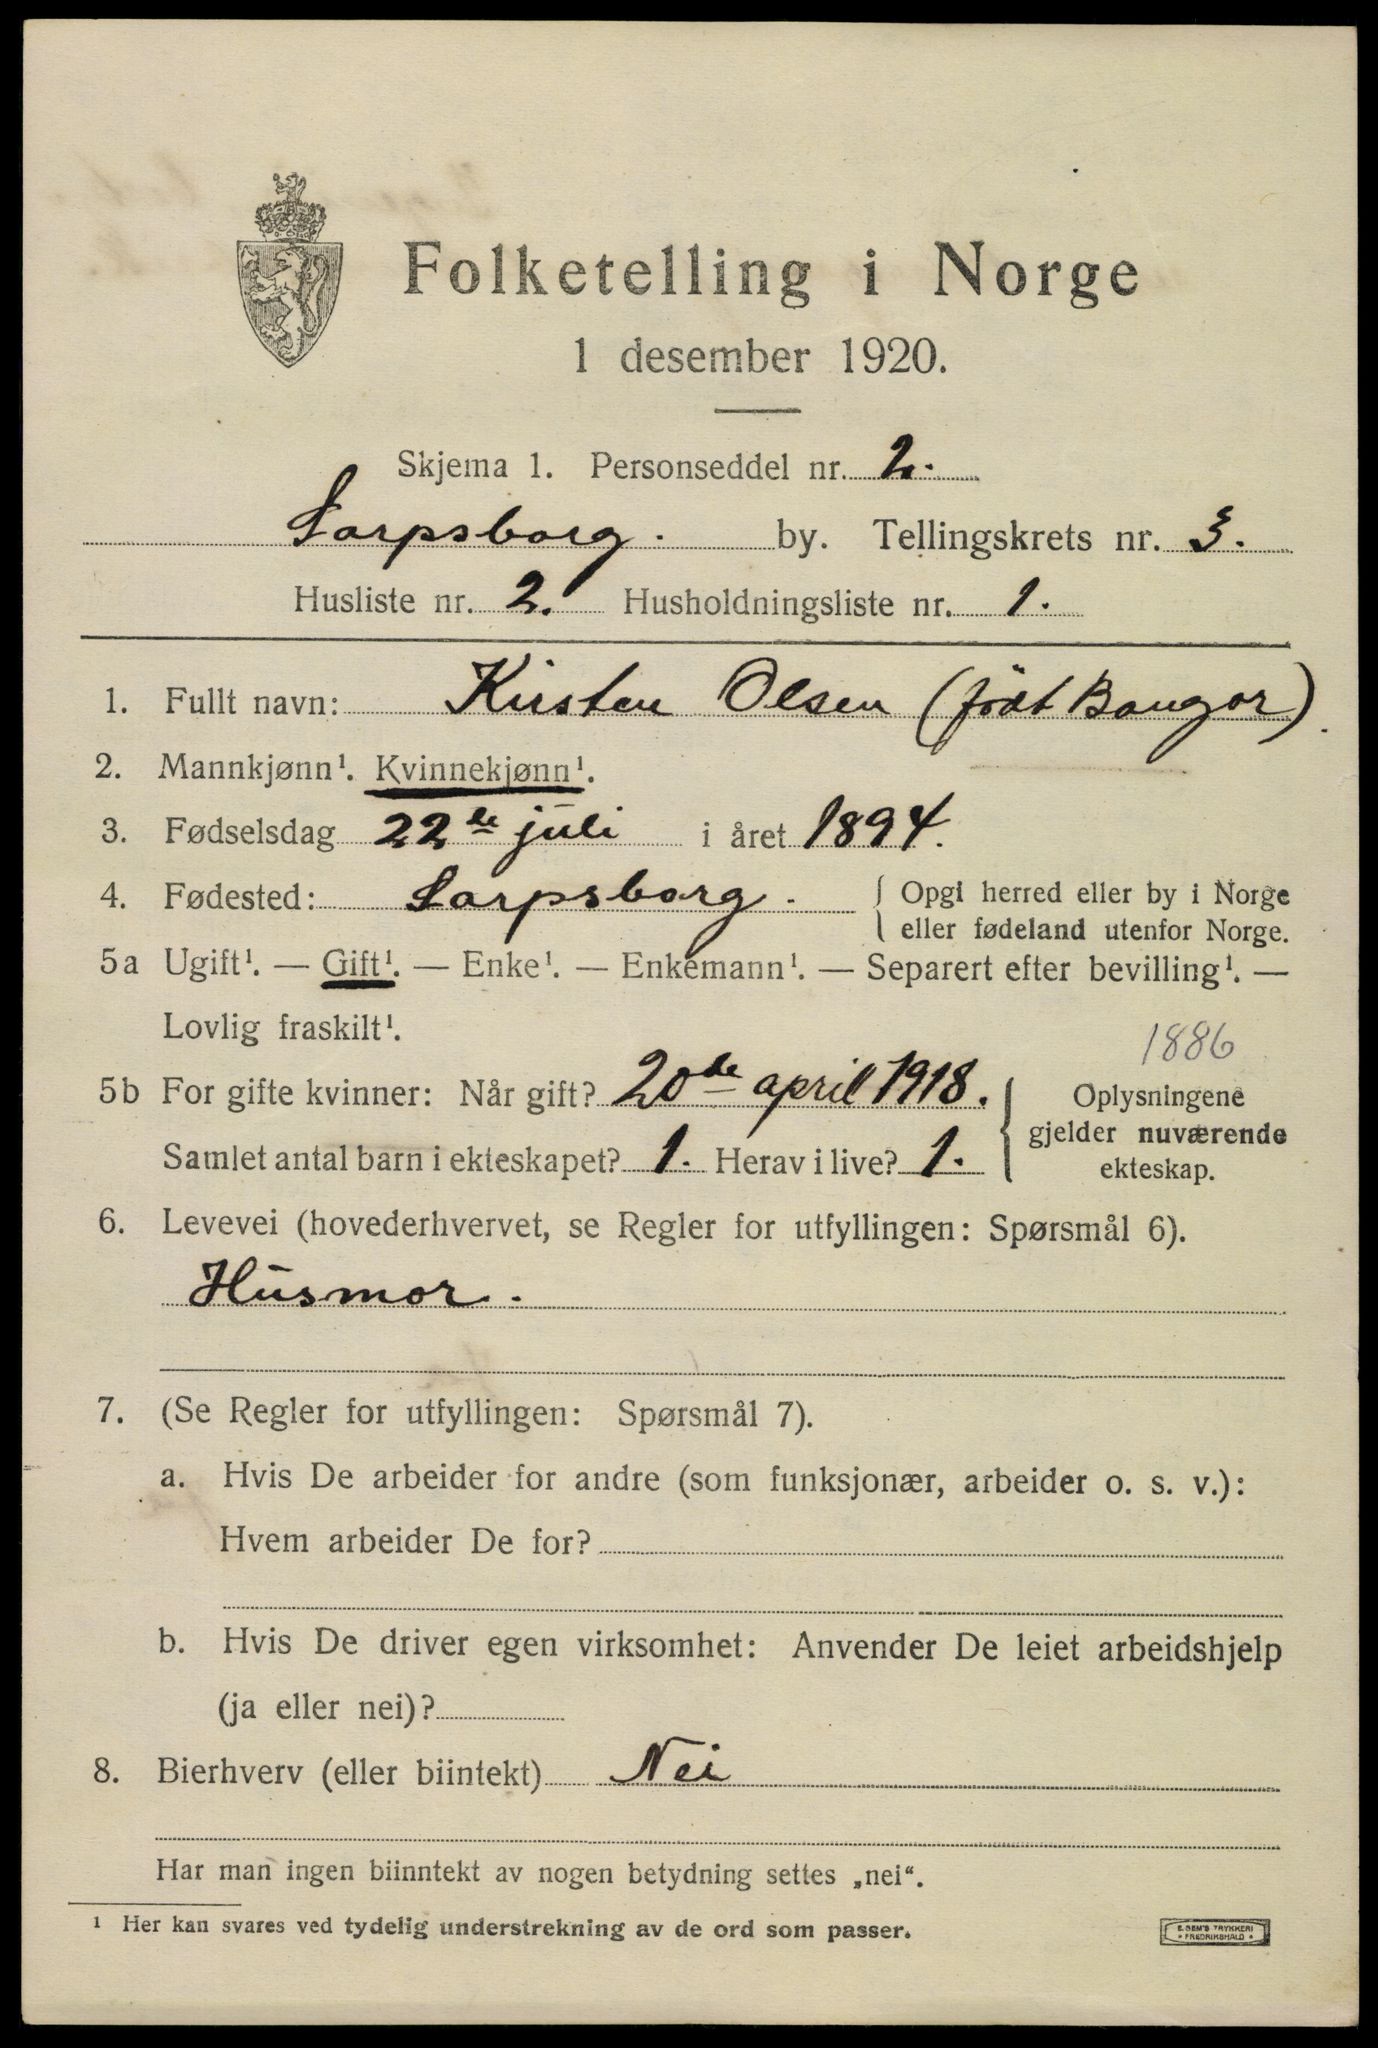 Folketelling i Norge
1 desember 1920.
Skjema 1. Personseddel nr. 2.
Sarpsborg. by. Tellingskrets nr. 3.
Husliste nr. 2. Husholdningsliste nr. 1.
1. Fullt navn: Kirsten Olsen (født Bangor).
2. Mannkjønn¹. Kvinnekjønn¹.
3. Fødselsdag 22de juli i året 1894.
4. Fødested: Sarpsborg. { Opgi herred eller by i Norge
eller fødeland utenfor Norge.
5a Ugift¹. — Gift¹. — Enke¹. — Enkemann¹. — Separert efter bevilling¹. —
Lovlig fraskilt¹.
1886
5b For gifte kvinner: Når gift? 20de april 1918. { Oplysningene
gjelder nuværende
Samlet antal barn i ekteskapet? 1. Herav i live? 1.
ekteskap.
6. Levevei (hovederhvervet, se Regler for utfyllingen: Spørsmål 6).
Husmor.
7. (Se Regler for utfyllingen: Spørsmål 7).
a. Hvis De arbeider for andre (som funksjonær, arbeider o. s. v.):
Hvem arbeider De for?
b. Hvis De driver egen virksomhet: Anvender De leiet arbeidshjelp
(ja eller nei)?
8. Bierhverv (eller biintekt) Nei
Har man ingen biinntekt av nogen betydning settes „nei“.
¹ Her kan svares ved tydelig understrekning av de ord som passer.
E. SEM'S TRYKKERI
* FREDRIKSHALD *